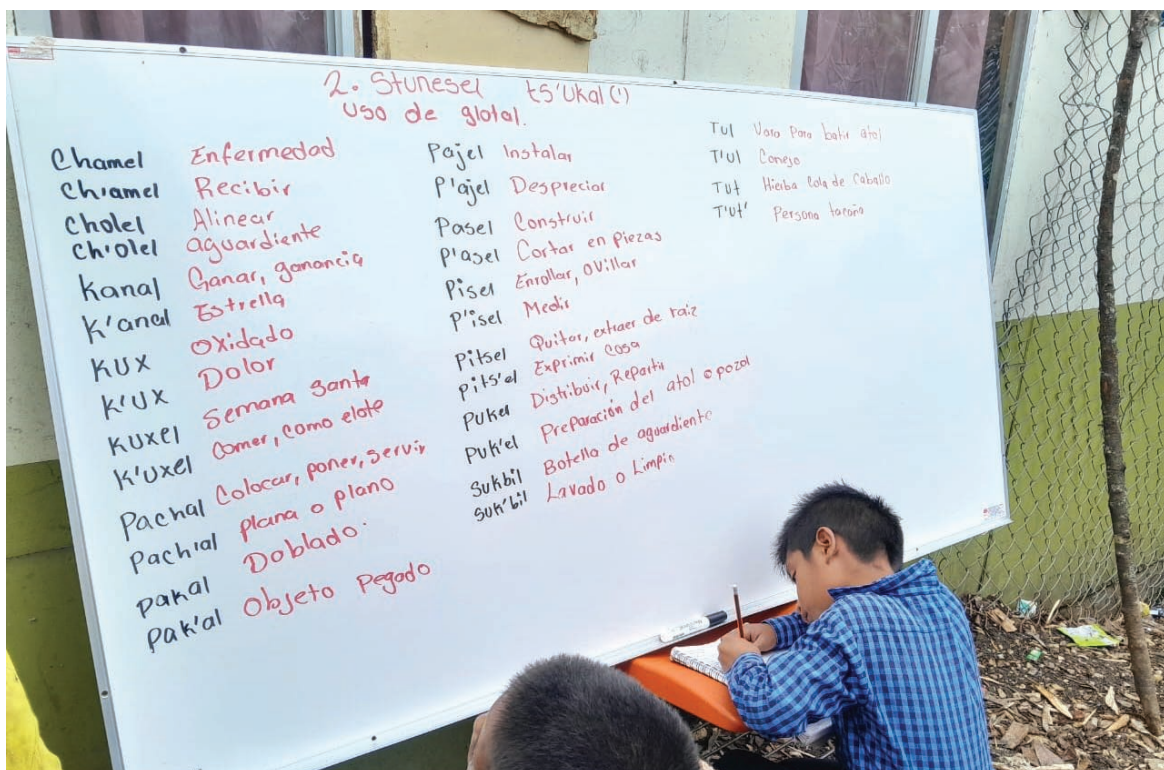 2. Stunesel ts'ukal (')
Uso de glotal.
Chamel Enfermedad
Ch'amel Recibir
Cholel Alinear
Ch'olel aguardiente
Kanal Ganar, ganancia
K'anal Estrella
KUX Oxidado
K'UX Dolor
KUxel Semana santa
K'uxel Comer, como elote
Pachal Colocar, poner, servir
Pach'al plana o plano
pakal Doblado.
pak'al Objeto pegado
Pajel Instalar
P'ajel Despreciar
Pasel Construir
P'asel Cortar en piezas
Pisel Enrollar, ovillar
P'isel Medir
Pitsel Quitar, extraer de raiz
pits'el Exprimir cosa
Pukel Distribuir, Repartir
Puk'el Preparación del atol o pozol
Sukbil Botella de aguardiente
Suk'bil Lavado o Limpio
Tul Vara Para batir atol
T'ul Conejo
Tut Hierba Cola de Caballo
T'ut' Persona tacaña